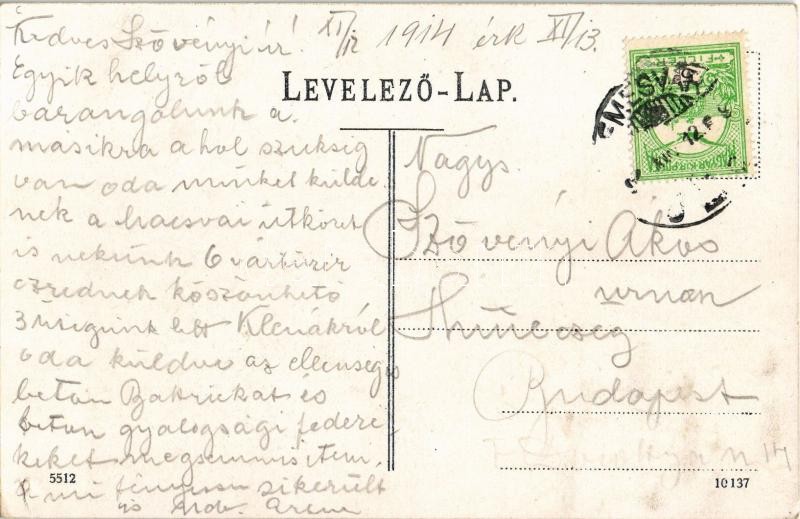 Kedves Szövényi úr! XI/12 1914 érk XII/13.
Egyik helyről
barangolunk a
másikra a hol szükség
van oda minket külde
nek a hacsvai ütközet
is nekünk 6 vártüzér
ezrednek köszönhető
3 ütegünk lett Klenákról
oda küldve az ellenség
beton Bakrickat és
beton gyalogsági federe
keket megsemmisítem,
a mi fényesen sikerült
is
LEVELEZŐ-LAP.
Nagys.
Szövényi Ákos
urnak
Budapest
14
5512
10137